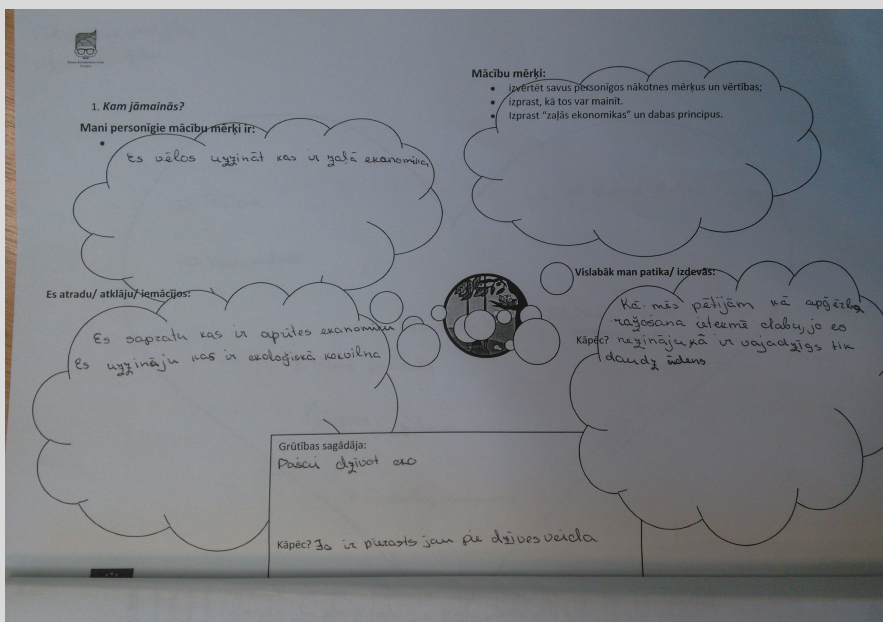 1. Kam jāmainās?
Mani personīgie mācību mērķi ir:
Es vēlos uzzināt kas ir zaļā ekanomika
Mācību mērķi:
• izvērtēt savus personīgos nākotnes mērķus un vērtības;
• izprast, kā tos var mainīt.
• Izprast “zaļās ekonomikas” un dabas principus.
Es atradu/ atklāju/ iemācījos:
Es sapratu kas ir aprites ekanomika
Es uzzināju kas ir ekoloģiskā kokvilna
Vislabāk man patika/ izdevās:
Kā mēs pētījām kā apģērba
ražošana ietekmē dabu, jo es
Kāpēc? nezināju kā ir vajadzīgs tik
daudz ūdens
Grūtības sagādāja:
Pašai dzīvot eko
Kāpēc? Jo ir pierasts jau pie dzīves veida